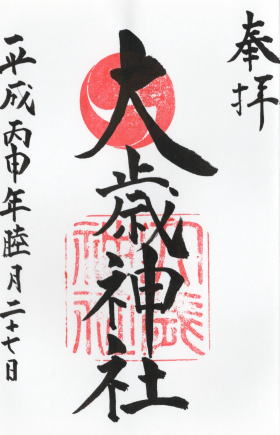 奉拝
大歳神社
平成丙申年睦月二十七日
大歳神社